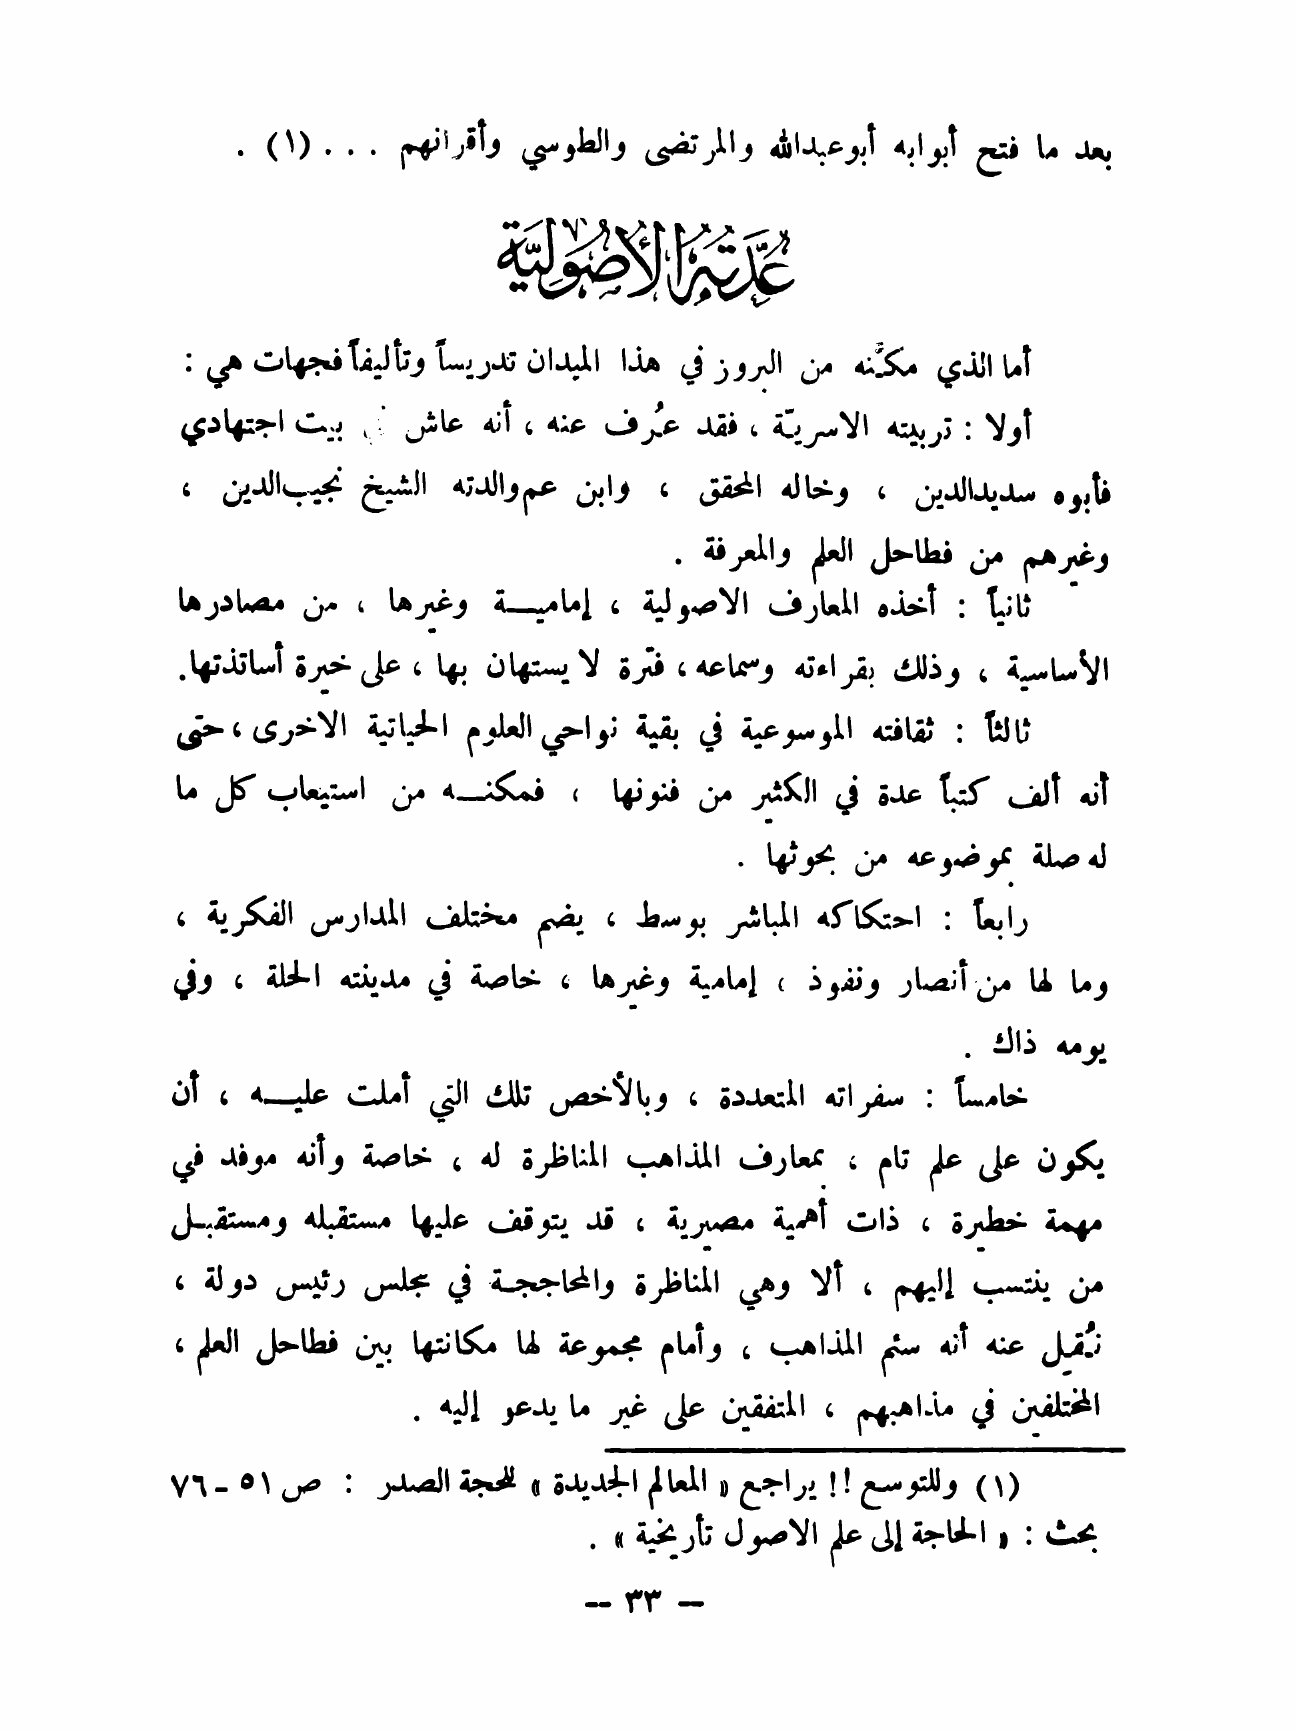 بعد ما فتح أبوابه أبوعبدالله والمرتضى والطوسي وأقرانهم . . . (١) .
عُدَّتُهُ الأُصُولِيَّة
أما الذي مكّنه من البروز في هذا الميدان تدريساً وتأليفاً فجهات هي :
أولا : تربيته الاسريّة ، فقد عُرف عنه ، أنه عاش في بيت اجتهادي
فأبوه سديدالدين ، وخاله المحقق ، وابن عم والدته الشيخ نجيب‌الدين ،
وغيرهم من فطاحل العلم والمعرفة .
ثانياً : أخذه المعارف الاصولية ، إماميــة وغيرها ، من مصادرها
الأساسية ، وذلك بقراءته وسماعه ، فترة لا يستهان بها ، على خيرة أساتذتها.
ثالثاً : ثقافته الموسوعية في بقية نواحي العلوم الحياتية الاخرى ، حتى
أنه ألف كتباً عدة في الكثير من فنونها ، فمكنــه من استيعاب كل ما
له صلة بموضوعه من بحوثها .
رابعاً : احتكاكه المباشر بوسط ، يضم مختلف المدارس الفكرية ،
وما لها من أنصار ونفوذ ، إمامية وغيرها ، خاصة في مدينته الحلة ، وفي
يومه ذاك .
خامساً : سفراته المتعددة ، وبالأخص تلك التي أملت عليــه ، أن
يكون على علم تام ، بمعارف المذاهب المناظرة له ، خاصة وأنه موفد في
مهمة خطيرة ، ذات أهمية مصيرية ، قد يتوقف عليها مستقبله ومستقبـل
من ينتسب إليهم ، ألا وهي المناظرة والمحاججـة في مجلس رئيس دولة ،
نُقـِل عنه أنه سئم المذاهب ، وأمام مجموعة لها مكانتها بين فطاحل العلم ،
المختلفين في مذاهبهم ، المتفقين على غير ما يدعو إليه .
(١) وللتوسع !! يراجع « المعالم الجديدة » للحجة الصدر : ص ٥١ - ٧٦
بحث : « الحاجة إلى علم الاصول تأريخية » .
— ٣٣ —